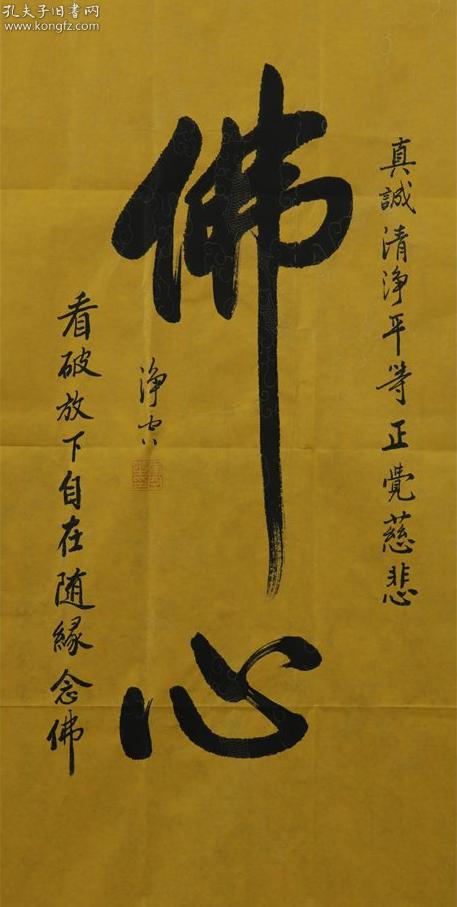 孔夫子旧書网
www.kongfz.com
真誠清淨平等正覺慈悲
佛心
淨空
看破放下自在随緣念佛